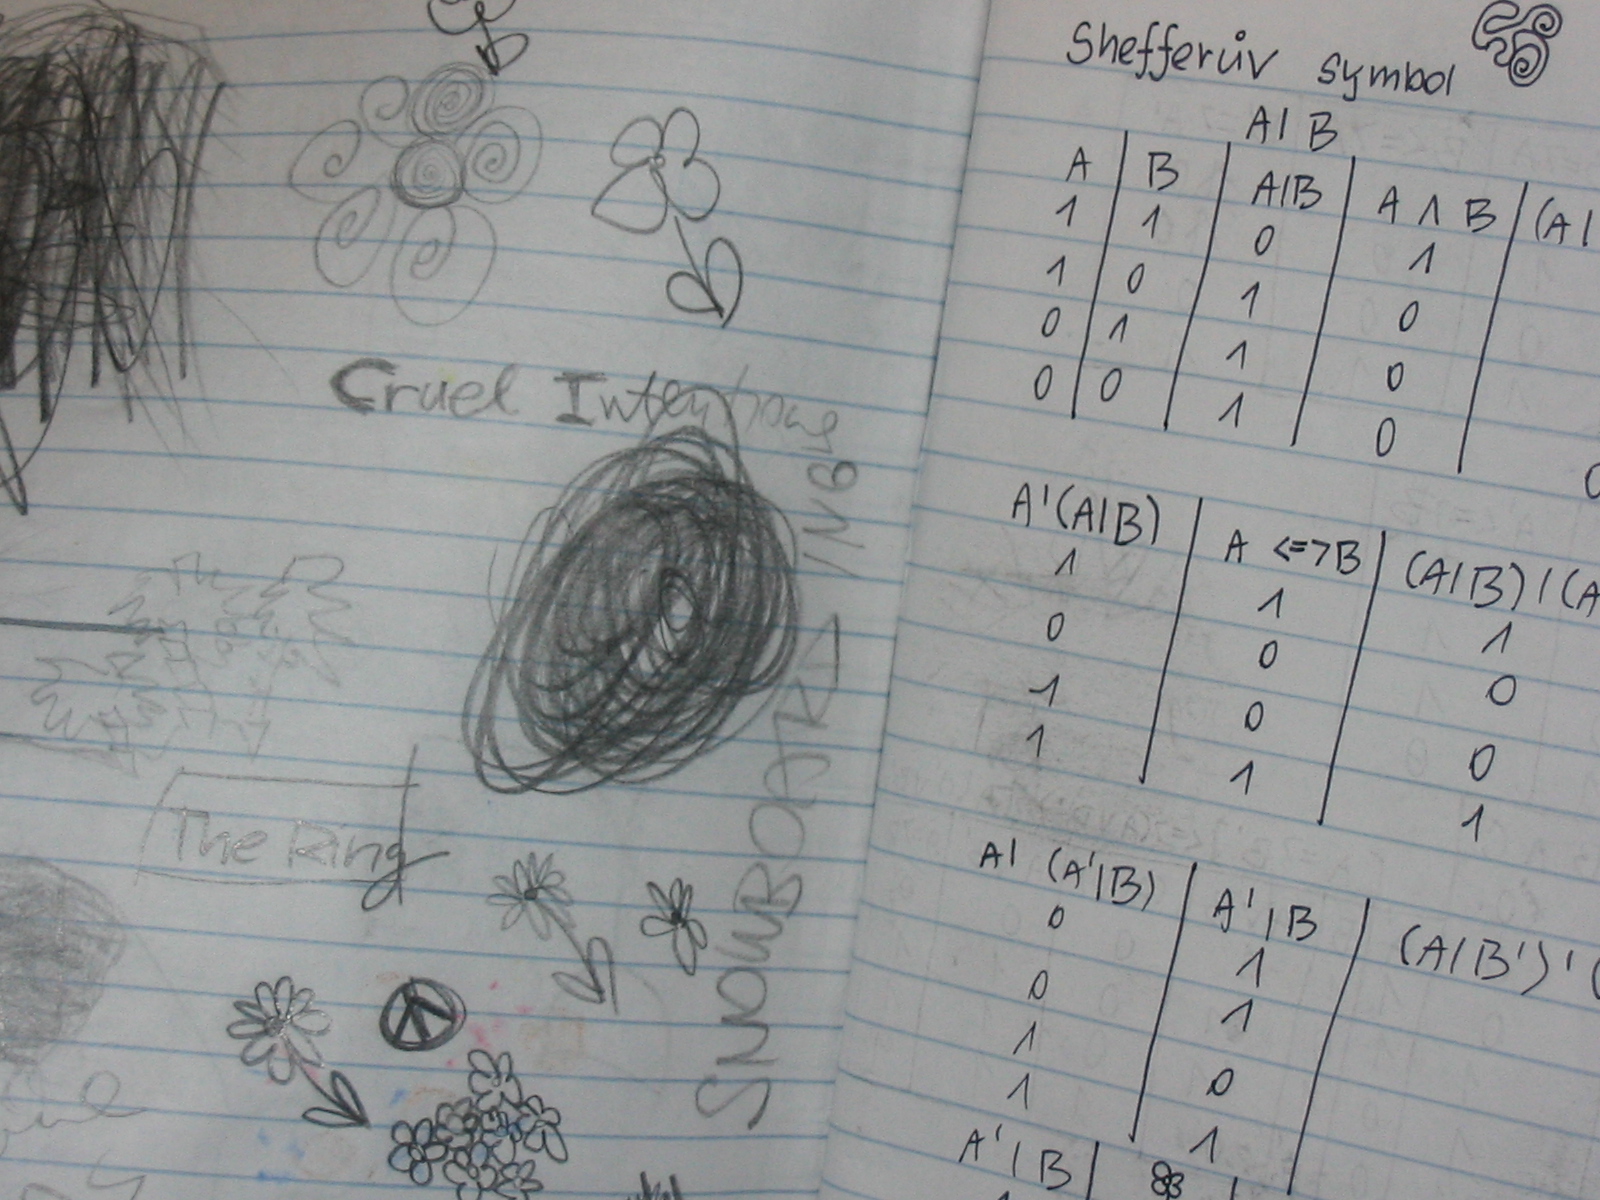 Cruel Intentions
SNOWBOARDING
The Ring
Shefferův symbol
A | B
A B A|B A ∧ B (A |
1 1 0 1
1 0 1 0
0 1 1 0
0 0 1 0
A'(A|B) A <=> B (A|B) | (A
1 1 1
0 0 0
1 0 0
1 1 1
A| (A'|B) A' | B (A|B')' (
0 1
0 1
1 0
1 1
A' | B